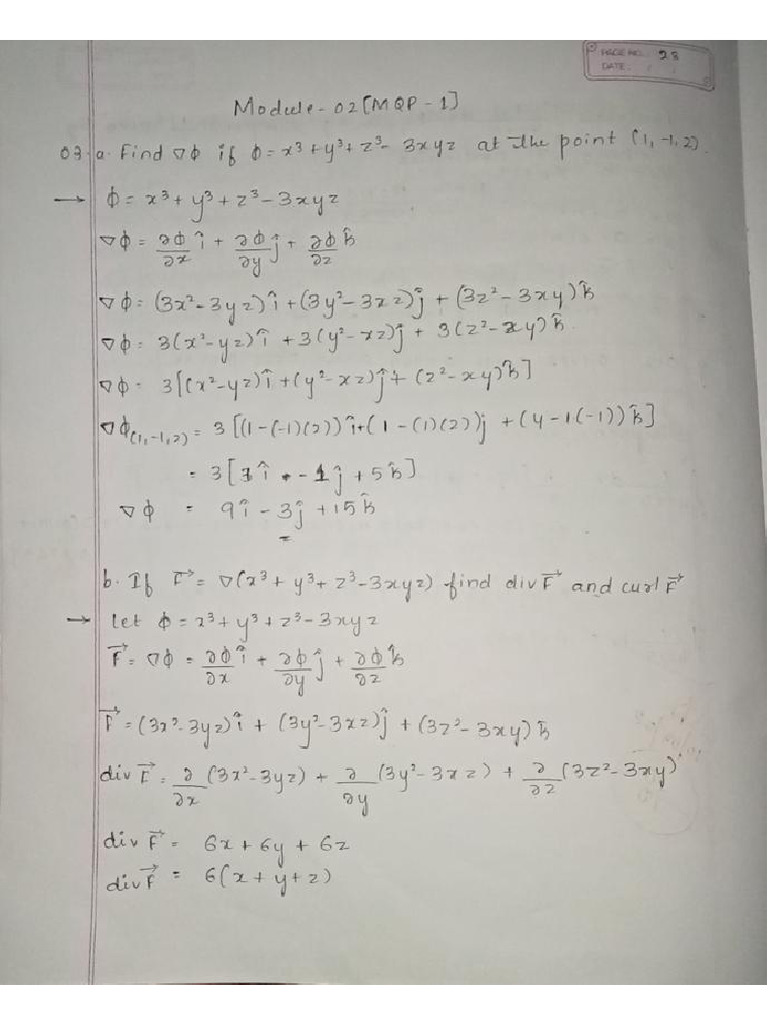 PAGE NO. 28
DATE: / /
Module - 02 [MQP - 1]
03. a. Find ∇ϕ if ϕ = x³ + y³ + z³ - 3xyz at the point (1, -1, 2).
→ ϕ = x³ + y³ + z³ - 3xyz
∇ϕ = ∂ϕ/∂x î + ∂ϕ/∂y ĵ + ∂ϕ/∂z k̂
∇ϕ = (3x² - 3yz) î + (3y² - 3xz) ĵ + (3z² - 3xy) k̂
∇ϕ = 3(x² - yz) î + 3(y² - xz) ĵ + 3(z² - xy) k̂
∇ϕ = 3[(x² - yz) î + (y² - xz) ĵ + (z² - xy) k̂]
∇ϕ(1, -1, 2) = 3[(1 - (-1)(2)) î + (1 - (1)(2)) ĵ + (4 - 1(-1)) k̂]
= 3[3 î + -1 ĵ + 5 k̂]
∇ϕ = 9 î - 3 ĵ + 15 k̂
b. If F⃗ = ∇(x³ + y³ + z³ - 3xyz) find div F⃗ and curl F⃗
→ Let ϕ = x³ + y³ + z³ - 3xyz
F⃗ = ∇ϕ = ∂ϕ/∂x î + ∂ϕ/∂y ĵ + ∂ϕ/∂z k̂
F⃗ = (3x² - 3yz) î + (3y² - 3xz) ĵ + (3z² - 3xy) k̂
div F⃗ = ∂/∂x (3x² - 3yz) + ∂/∂y (3y² - 3xz) + ∂/∂z (3z² - 3xy)
div F⃗ = 6x + 6y + 6z
div F⃗ = 6(x + y + z)